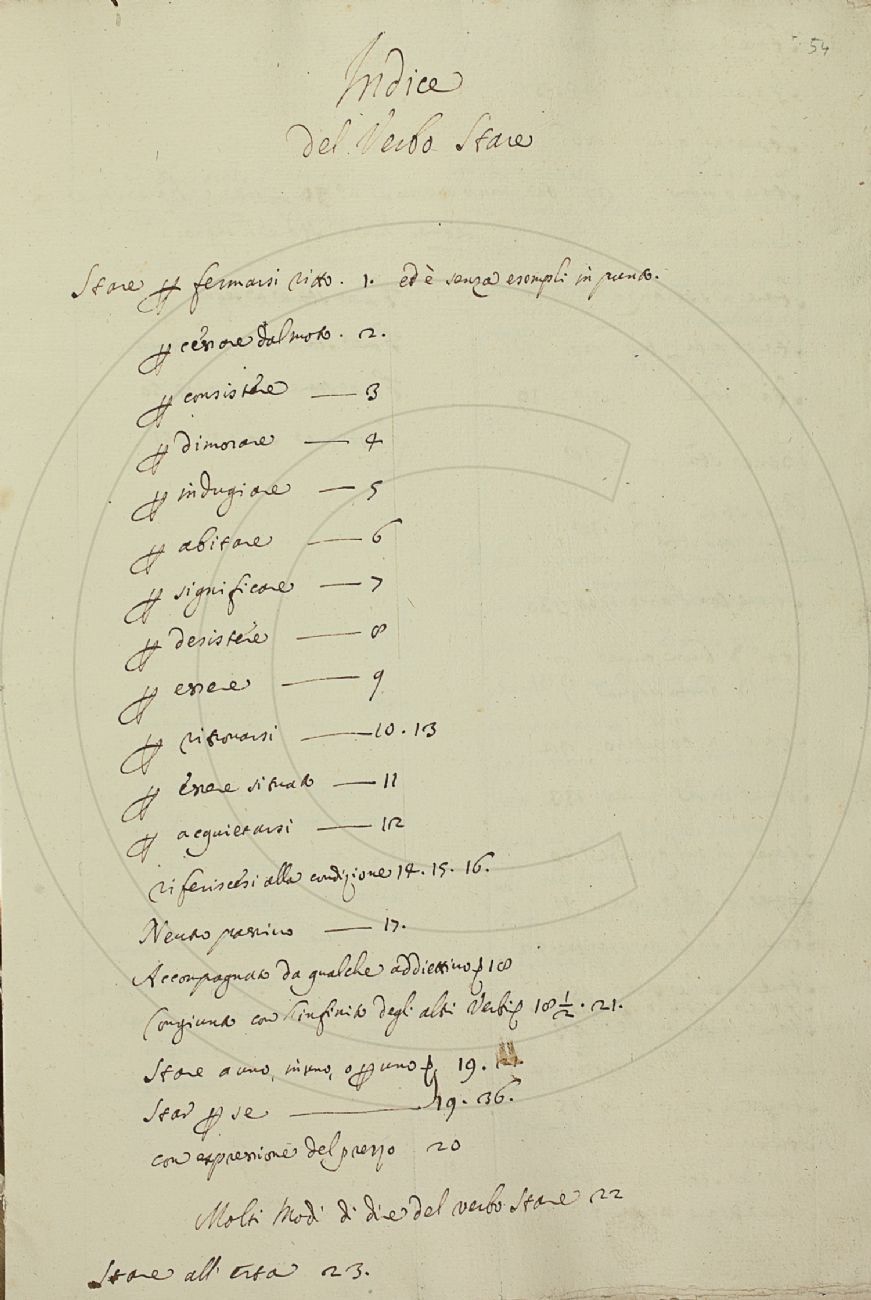 54
Indice
Del Verbo Stare
Stare ꝑ fermarsi ritto . 1. ed è senza esempli in punto.
ꝑ cessare dal moto . 2.
ꝑ consistere — 3
ꝑ dimorare — 4
ꝑ indugiare — 5
ꝑ abitare — 6
ꝑ significare — 7
ꝑ desistere — 8
ꝑ essere — 9
ꝑ ritrovarsi — 10 . 13
ꝑ essere situato — 11
ꝑ acquietarsi — 12
riferiscesi alla condizione 14 . 15 . 16.
Neutro passivo — 17.
Accompagnato da qualche addiettivo 18
Congiunto con l'infinito degli altri Verbi 18 1/2 . 21.
Stare a uno, in uno, o ꝑ uno 19 .
Star ꝑ se — 19 . 36.
con espressione del prezzo 20
Molti Modi di dire del verbo Stare 22
Stare all'erta 23.